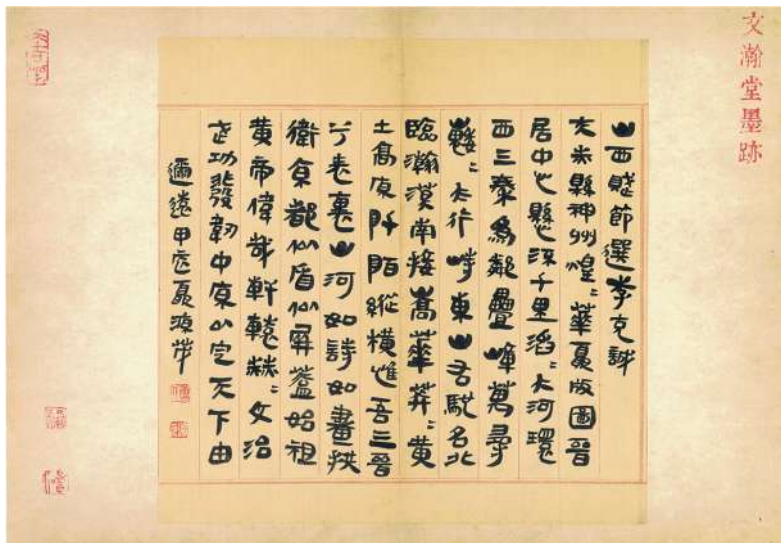 文瀚堂墨跡
山西賦節選李克誠
赤縣神州煌〻華夏版圖晉
居中也懸流千里滔〻大河環
西三秦為鄰疊嶂萬尋
巍〻太行峙東山右馳名北
臨瀚漠南接嵩華莽〻黃
土高原阡陌縱橫惟吾三晉
兮表裏山河如詩如畫拱
衛京都似盾似屏蓋始祖
黃帝偉哉軒轅赫〻文治
武功發韌中原以定天下由
邇遠甲辰聶源